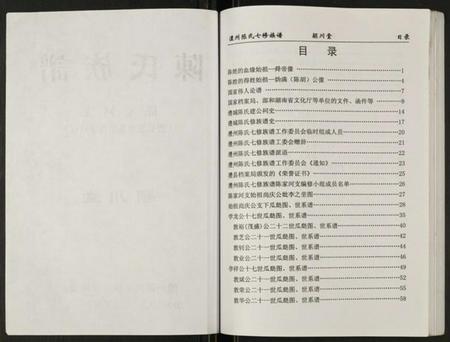 澧州陈氏七修族谱 颍川堂 目录
目录
陈姓的血缘始祖—舜帝像 1
陈姓的得姓始祖—妫满（陈胡）公像 4
国家伟人论谱 7
国家档案局、部和湖南省文化厅等单位的文件、函件等 8
澧城陈氏建公祠史 14
澧城陈氏修族谱史 17
澧州陈氏七修族谱工作委员会临时组成人员 20
澧州陈氏七修族谱工作委会赠辞 21
澧州陈氏七修族谱派语 22
澧州陈氏七修族谱工作委员会《通知》 23
澧县档案局颁发的《荣誉证书》 25
澧州陈氏七修族谱陈家河支编修小组成员名单 26
陈家河支始祖尚庆公批李之垄图 27
始祖尚庆公支下瓜瓞图、世系谱 28
学龙公十七世瓜瓞图、世系谱 35
教裕（茂盛）公二十二世瓜瓞图、世系谱 40
教芝公二十一世瓜瓞图、世系谱 42
教钊公二十一世瓜瓞图、世系谱 44
教业公二十一世瓜瓞图、世系谱 46
学祥公十七世瓜瓞图、世系谱 49
教斌公二十一世瓜瓞图、世系谱 52
教荣公二十一世瓜瓞图、世系谱 55
教华公二十一世瓜瓞图、世系谱 58
陳氏族譜